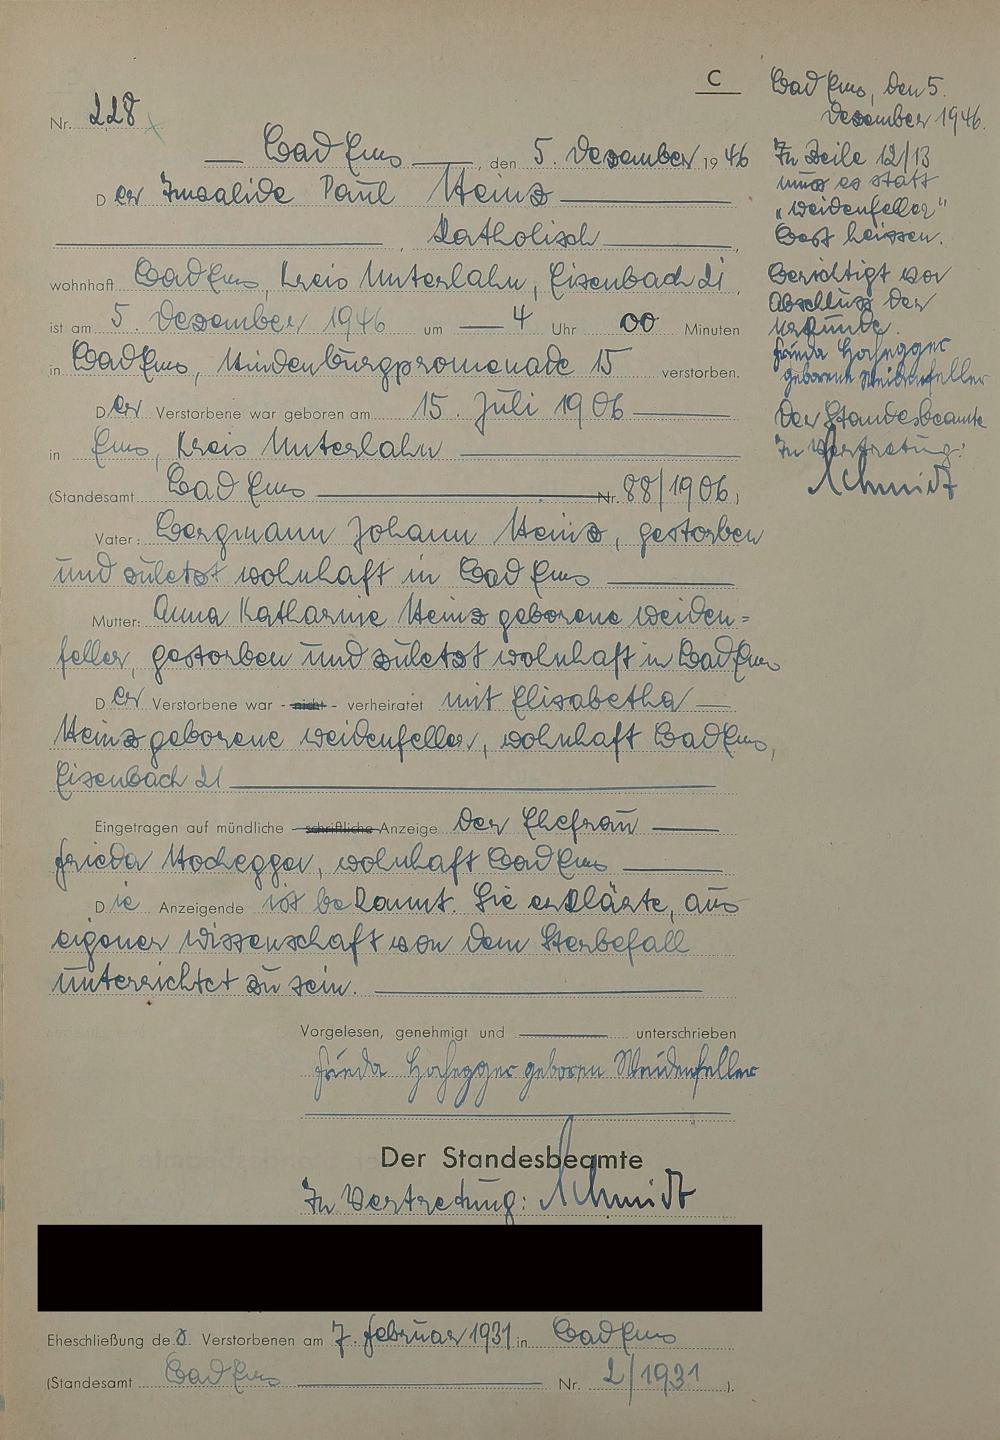 C
Nr. 228
Bad Ems, den 5. Dezember 1946
Der Invalide Paul Heinz
, Katholisch,
wohnhaft Bad Ems, Kreis Unterlahn, Eisenbach 21,
ist am 5. Dezember 1946 um 4 Uhr 00 Minuten
in Bad Ems, Hindenburgpromenade 15 verstorben.
Der Verstorbene war geboren am 15. Juli 1906
in Ems, Kreis Unterlahn
(Standesamt Bad Ems Nr. 88/1906)
Vater: Bergmann Johann Heinz, gestorben
und zuletzt wohnhaft in Bad Ems
Mutter: Anna Katharine Heinz geborene Weiden=
feller, gestorben und zuletzt wohnhaft in Bad Ems
Der Verstorbene war - nicht - verheiratet mit Elisabetha
Heinz geborene Weidenfeller, wohnhaft Bad Ems,
Eisenbach 21
Eingetragen auf mündliche - schriftliche - Anzeige der Ehefrau
Frieda Hochegger, wohnhaft Bad Ems
Die Anzeigende ist bekannt. Sie erklärte, aus
eigener Wissenschaft von dem Sterbefall
unterrichtet zu sein.
Vorgelesen, genehmigt und unterschrieben
Frieda Hohegger geboren Weidenfeller
Der Standesbeamte
In Vertretung: Schmidt
Eheschließung des Verstorbenen am 7. Februar 1931 in Bad Ems
(Standesamt Bad Ems Nr. 2/1931).
Bad Ems, den 5.
Dezember 1946.
In Zeile 12/13
muss es statt
"Weidenfeller"
Bast heissen.
Berichtigt vor
Abschluss der
Urkunde.
Frieda Hohegger
geborene Weidenfeller
Der Standesbeamte
In Vertretung:
Schmidt